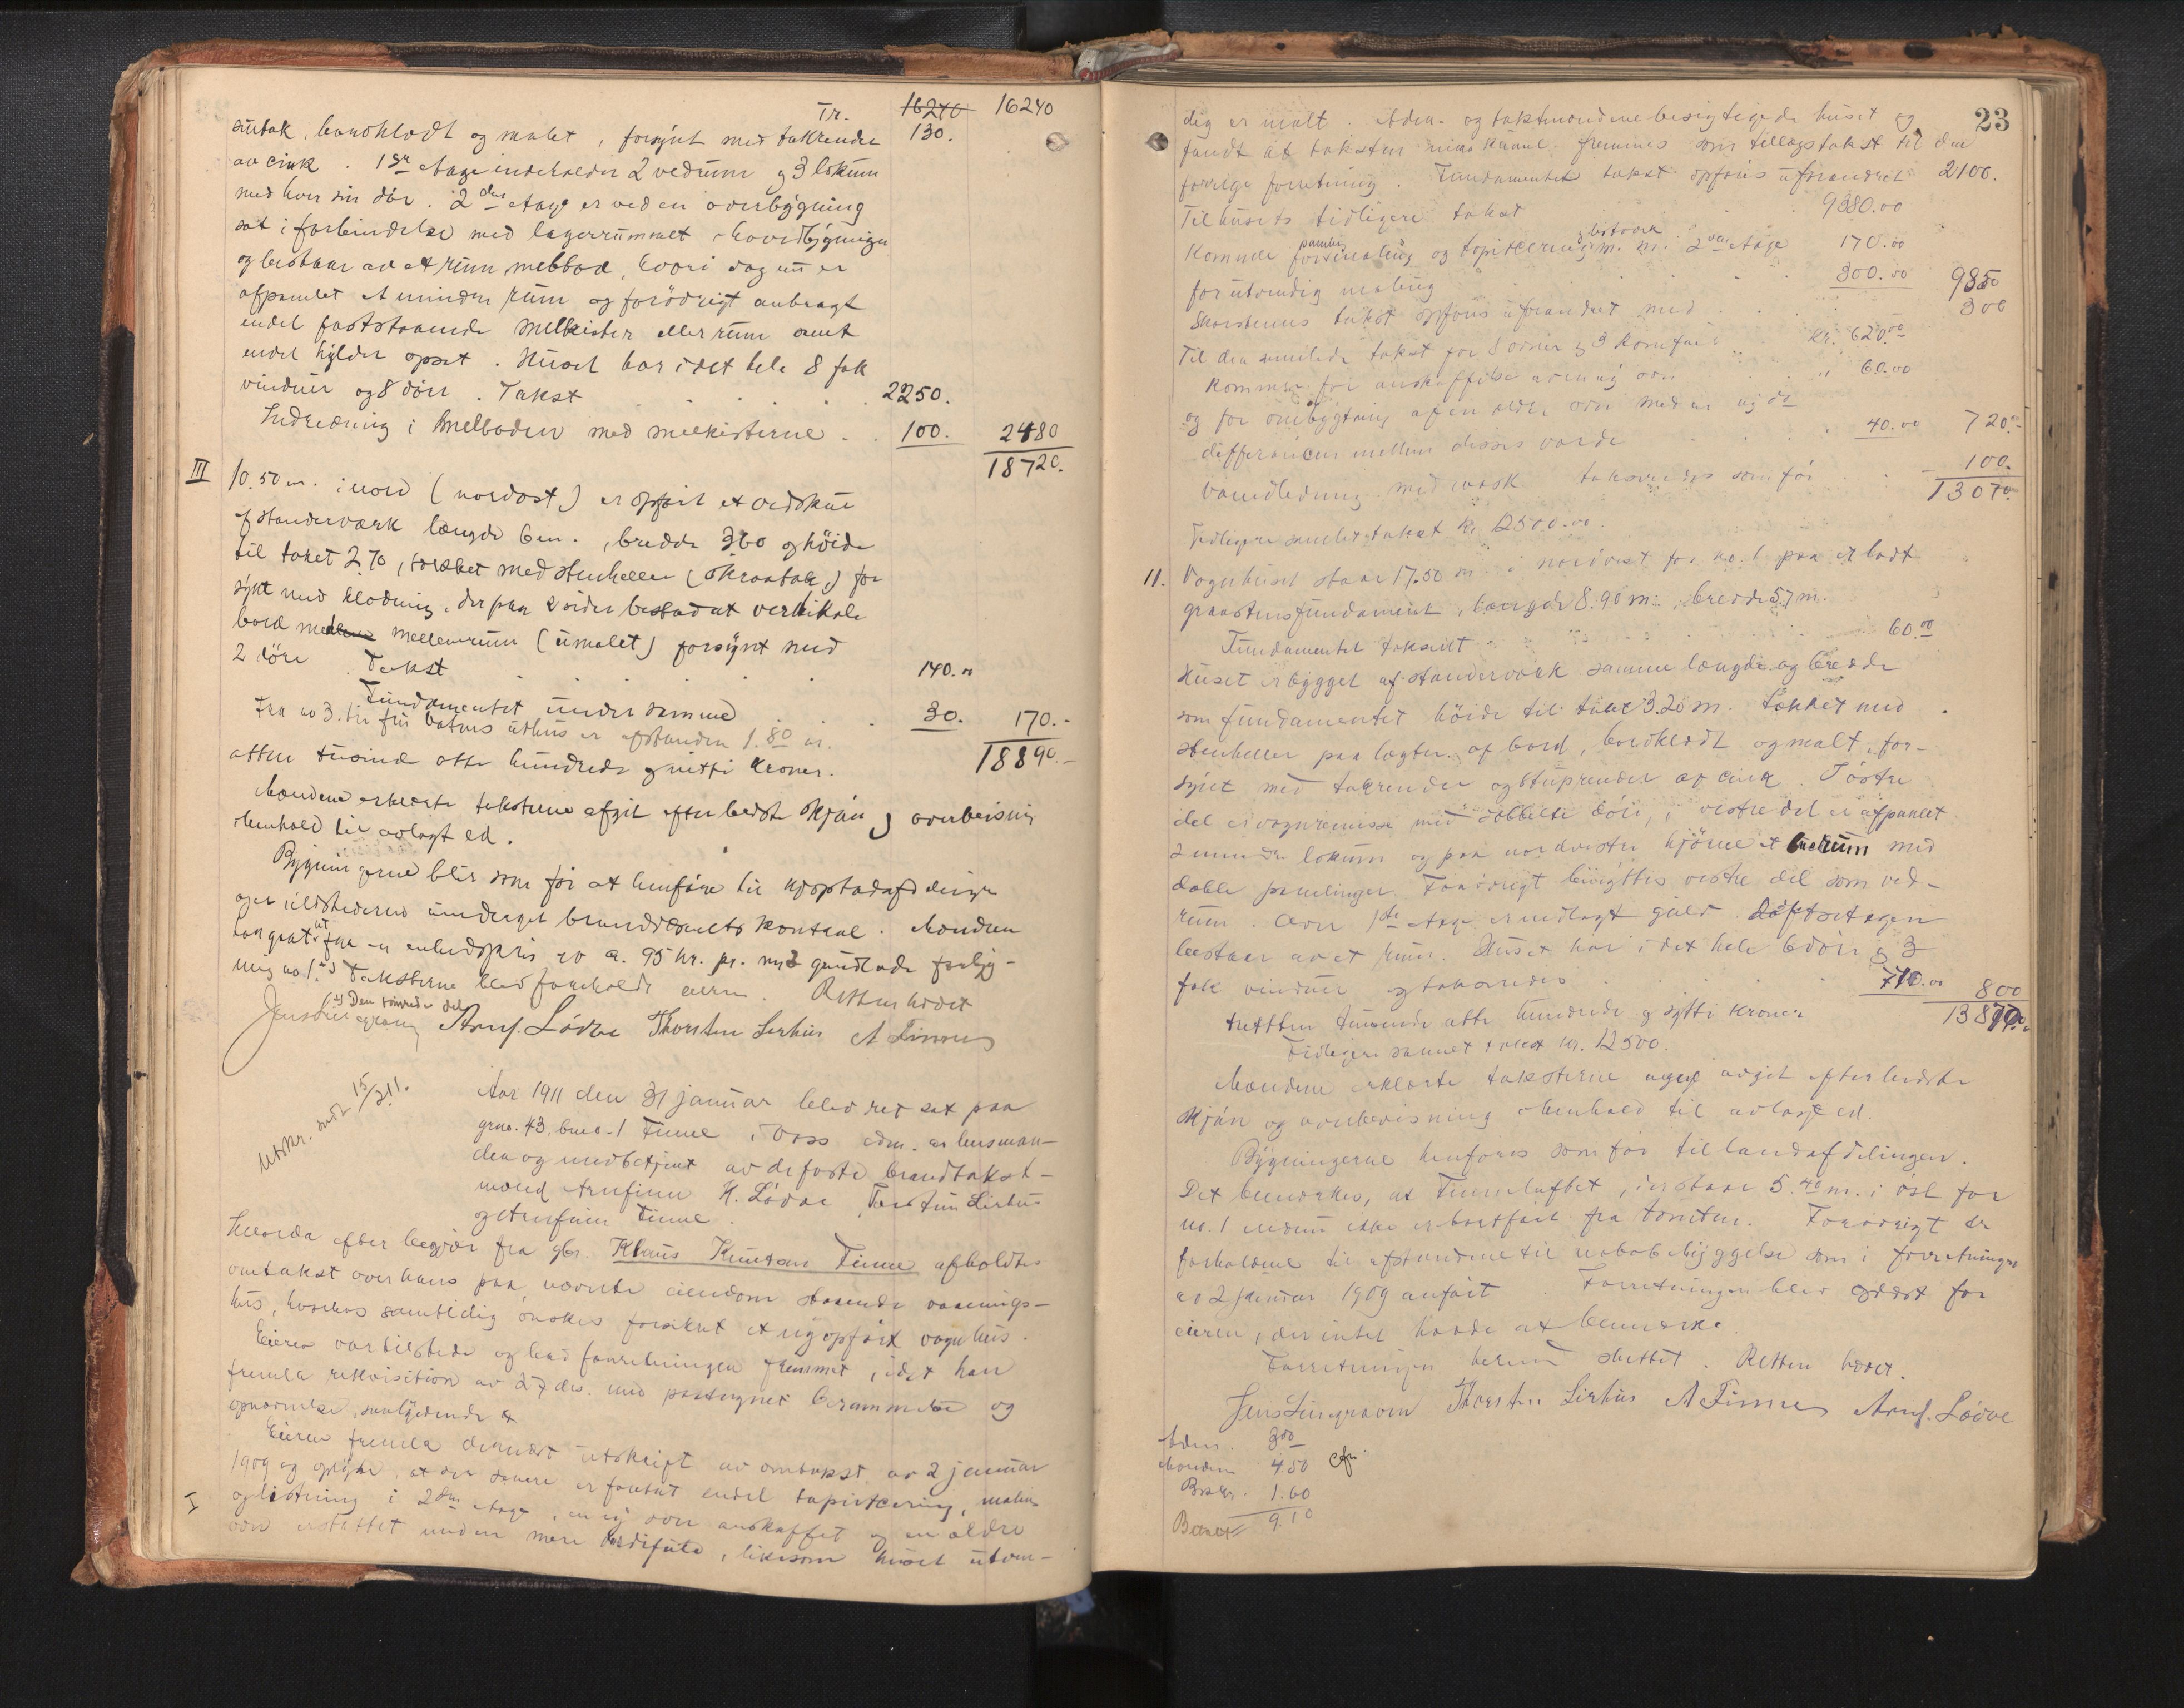 Tr. 16240 16240
sutak, bordklædt og malet, forsynt med takrender 130.
av cink. 1ste Etage indeholder 2 vedrum og 3 lokum
med hver sin dør. 2den Etage er ved en overbygning
sat i forbindelse med lagerrummet i hovedbygningen
og bestaar av et rum, melbod, hvori dog nu er
afpanlet et mindre rum og forövrigt anbragt
endel faststaaende melkister eller rum samt
endel hylder opsat. Huset har i det hele 8 fak
vinduer og 8 dörer. Takst 2250.
Indredning i melboden med melkisterne 100. 2480
18720.
III 10.50 m. i nord (nordost) er opfört et vedskur
af standerværk længde 6 m., bredde 360 og höide
til taket 2.70, tækket med stenheller (skraatak,) for
synt med klædning, der paa 2 sider bestaar at vertikale
bord med mellemrum (umalet) forsynt med
2 döre. Takst 140.00
Fundamentet under samme 30. 170.-
Fra no 3. til frü Vatnes uthus er afstanden 1.80 m.
atten tusind otte hundrede og nitti kroner. 18890.-
Mændene erklærte taksterne afgit efter bedste skjön og overbevisning
i henhold til avlagt ed.
Bygningerne blir som för at henföre til kjöpstadafdelingen
og er ildstederne underlagt brandvæsenets kontrol. Mændene
har gaat ut fra en enhedspris av ca. 95 kr. pr. m2 grundflade for byg-
ning no 1. x) Taksterne blev foreholdt eieren. Retten hævet
x) Den tömrede del
Jens Lindegraven Arnf. Lödve Thorsten Lirhus A Finne
Utskr. sendt 15/3 11.
Aar 1911 den 31 januar blev ret sat paa
grno. 43, brno. 1 Finne i Voss adm. av lensman-
den og medbetjent av de faste brandtakst-
mænd Arnfinn K. Lödve, Torstein Lirhus
og Arnfinn Finne.
Hvorda efter begjær fra gbr. Klaus Knutson Finne afholdtes
omtakst over hans paa nævnte eiendom staaende vaanings-
hus, hvorhos samtidig önskes forsikret et nyopfört vognhus.
Eieren var tilstede og bad forretningen fremmet, idet han
fremla rekvisition av 27 des. med paategnet berammelse og
opnævnelse, saalydende x
Eieren fremla dernæst utskrift av omtakst av 2 januar
1909 og oplyste, at der senere er foretat endel tapitsering, maling
I og listning i 2den etage, en ny ovn anskaffet og en ældre
ovn erstattet med en mere værdifuld, likesom huset utven-
23
dig er malt. Adm. og takstmændene besigtigede huset og
fandt at taksten maa kunne fremmes som tillægstakst til den
forrige forretning. Fundamentet takst opföres uforandret 2100.
Til husets tidligere takst 9380.00
Kommer for panling maling og tapitsering og listverk m.m. i 2den Etage 170.00
for utvendig maling 300.00 9850
Skorstenens takst opföres uforandret med 300
Til den samlede takst for 8 ovner og 3 komfurer kr. 620.00
kommer for anskaffelse av en ny ovn " 60.00
og for ombytning af en ældre ovn med en ny do
differancen mellem disses værdi 40.00 720.-
Vandledning med vask taksteres som för 100.
13070.
Tidligere samlet takst kr. 12500.00.
11. Vognhuset staar 17.50 m i nordvest for no. 1 paa et lavt
graastensfundament, længde 8.90 m., bredde 5.7 m.
Fundamentet taksert 60.00
Huset er bygget af standerværk samme længde og bredde
som fundamentet höide til taket 3.20 m. tækket med
stenheller paa lægter af bord, bordklædt og malt, for-
synt med takrender og stuprender af cink. I östre
del er vognremisse med dobbelte döre, i vestre del er afpanlet
2 mindre lokum og paa nordvestre hjörne et rum med
doble panelinger. Forövrigt benyttes vestre del som ved-
rum. Over 1ste etage er indlagt gulv. Loftsetagen
bestaar av et rum. Huset har i det hele 6 döre og 3
fak vinduer og taksteres 740.00 800
tretten tusende otte hundrede og sytti kroner 13870.
Tidligere samlet takst kr. 12500.
Mændene erklærte taksterne avgit efter bedste
skjön og overbevisning i henhold til avlagt ed.
Bygningerne henföres som för til landafdelingen.
Det bemerkes, at Finneloftet, der staar 5.40 m. i öst for
no. 1 endnu ikke er bortfört fra tomten. Forövrigt er
forholdene til afstandene til nabobebyggelse som i forretningen
av 2 januar 1909 anfört. Forretningen blev oplæst for
eieren, der intet havde at bemærke.
Forretningen hermed sluttet. Retten hævet.
Jens Lindegraven Thorsten Lirhus A Finne Arnf. Lödve
Adm. 3.00
Mændene 4.50 Cfr.
1.60
Betalt 9.10